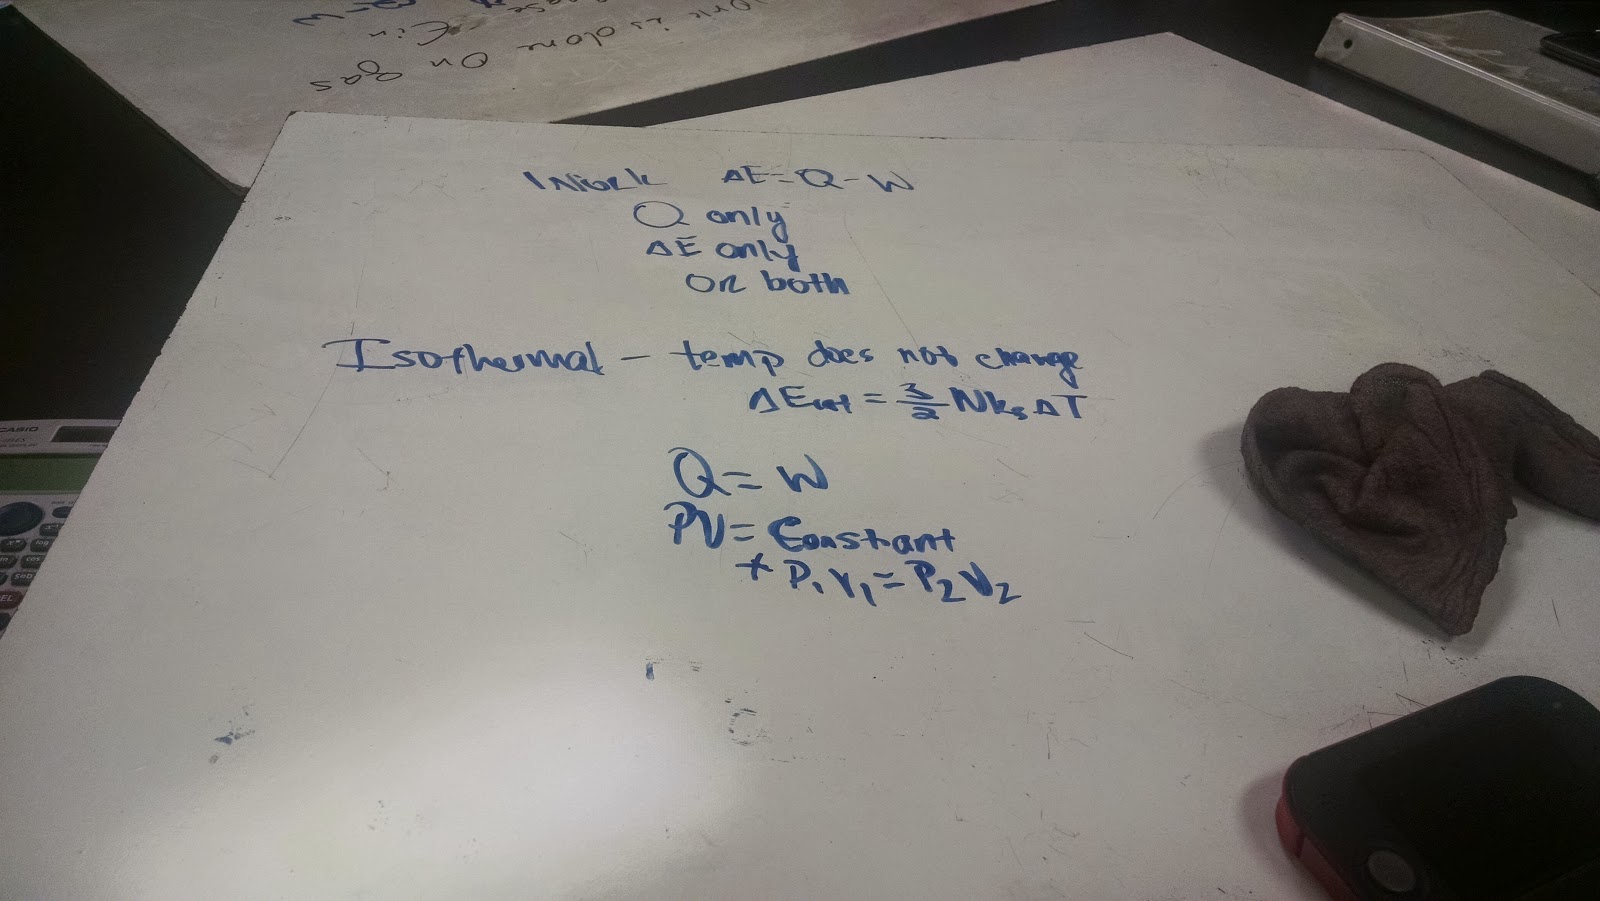 is done on gas
Ein
CASIO
Work ΔE=Q-W
Q only
ΔE only
OR both
Isothermal - temp does not change
ΔEint = 3/2 Nkb ΔT
Q = W
PV = Constant
* P1V1 = P2V2